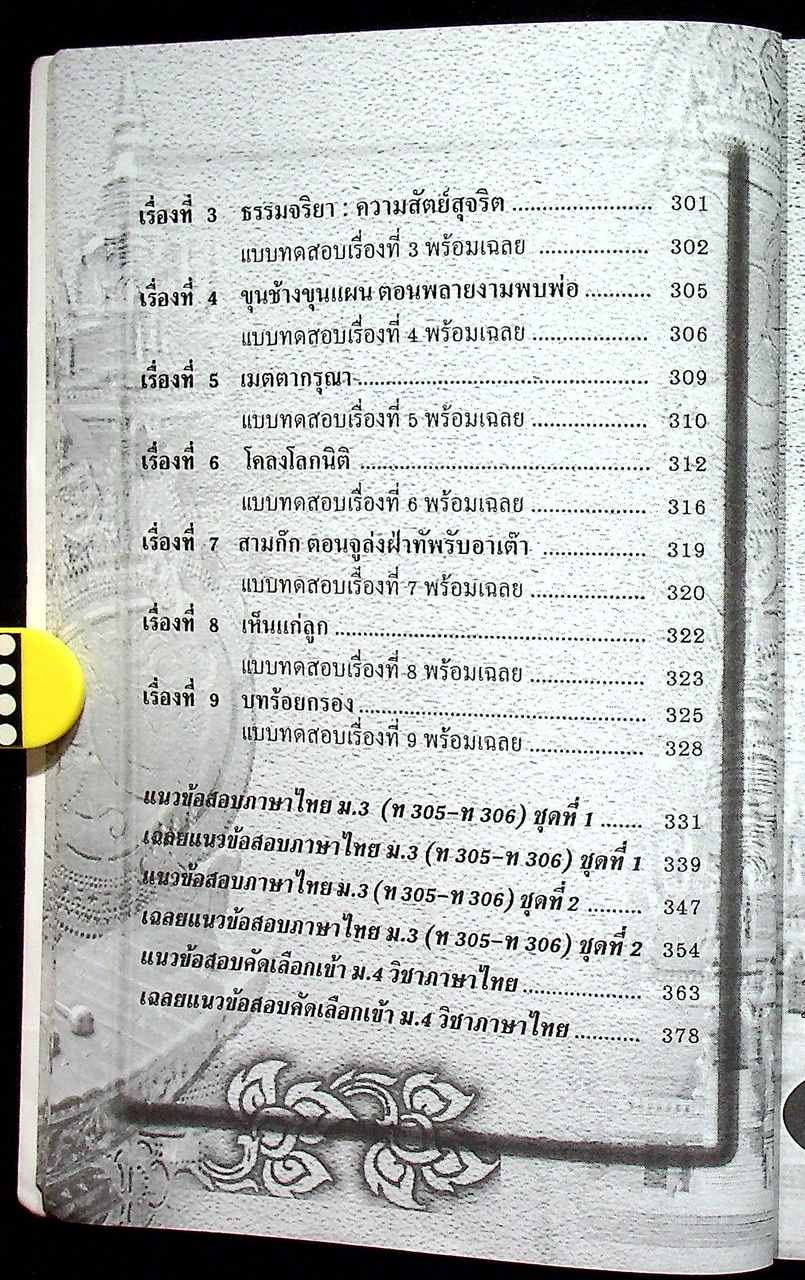 เรื่องที่ 3 ธรรมจริยา : ความสัตย์สุจริต ...................... 301
แบบทดสอบเรื่องที่ 3 พร้อมเฉลย ................. 302
เรื่องที่ 4 ขุนช้างขุนแผน ตอนพลายงามพบพ่อ ........... 305
แบบทดสอบเรื่องที่ 4 พร้อมเฉลย .................. 306
เรื่องที่ 5 เมตตากรุณา ............................................. 309
แบบทดสอบเรื่องที่ 5 พร้อมเฉลย .................. 310
เรื่องที่ 6 โคลงโลกนิติ ............................................. 312
แบบทดสอบเรื่องที่ 6 พร้อมเฉลย .................. 316
เรื่องที่ 7 สามก๊ก ตอนจูล่งฝ่าทัพรับอาเต๊า ................ 319
แบบทดสอบเรื่องที่ 7 พร้อมเฉลย .................. 320
เรื่องที่ 8 เห็นแก่ลูก ................................................ 322
แบบทดสอบเรื่องที่ 8 พร้อมเฉลย .................. 323
เรื่องที่ 9 บทร้อยกรอง ............................................. 325
แบบทดสอบเรื่องที่ 9 พร้อมเฉลย .................. 328
แนวข้อสอบภาษาไทย ม.3 (ท 305-ท 306) ชุดที่ 1 ....... 331
เฉลยแนวข้อสอบภาษาไทย ม.3 (ท 305-ท 306) ชุดที่ 1 339
แนวข้อสอบภาษาไทย ม.3 (ท 305-ท 306) ชุดที่ 2 ......... 347
เฉลยแนวข้อสอบภาษาไทย ม.3 (ท 305-ท 306) ชุดที่ 2 354
แนวข้อสอบคัดเลือกเข้า ม.4 วิชาภาษาไทย ................... 363
เฉลยแนวข้อสอบคัดเลือกเข้า ม.4 วิชาภาษาไทย ........... 378